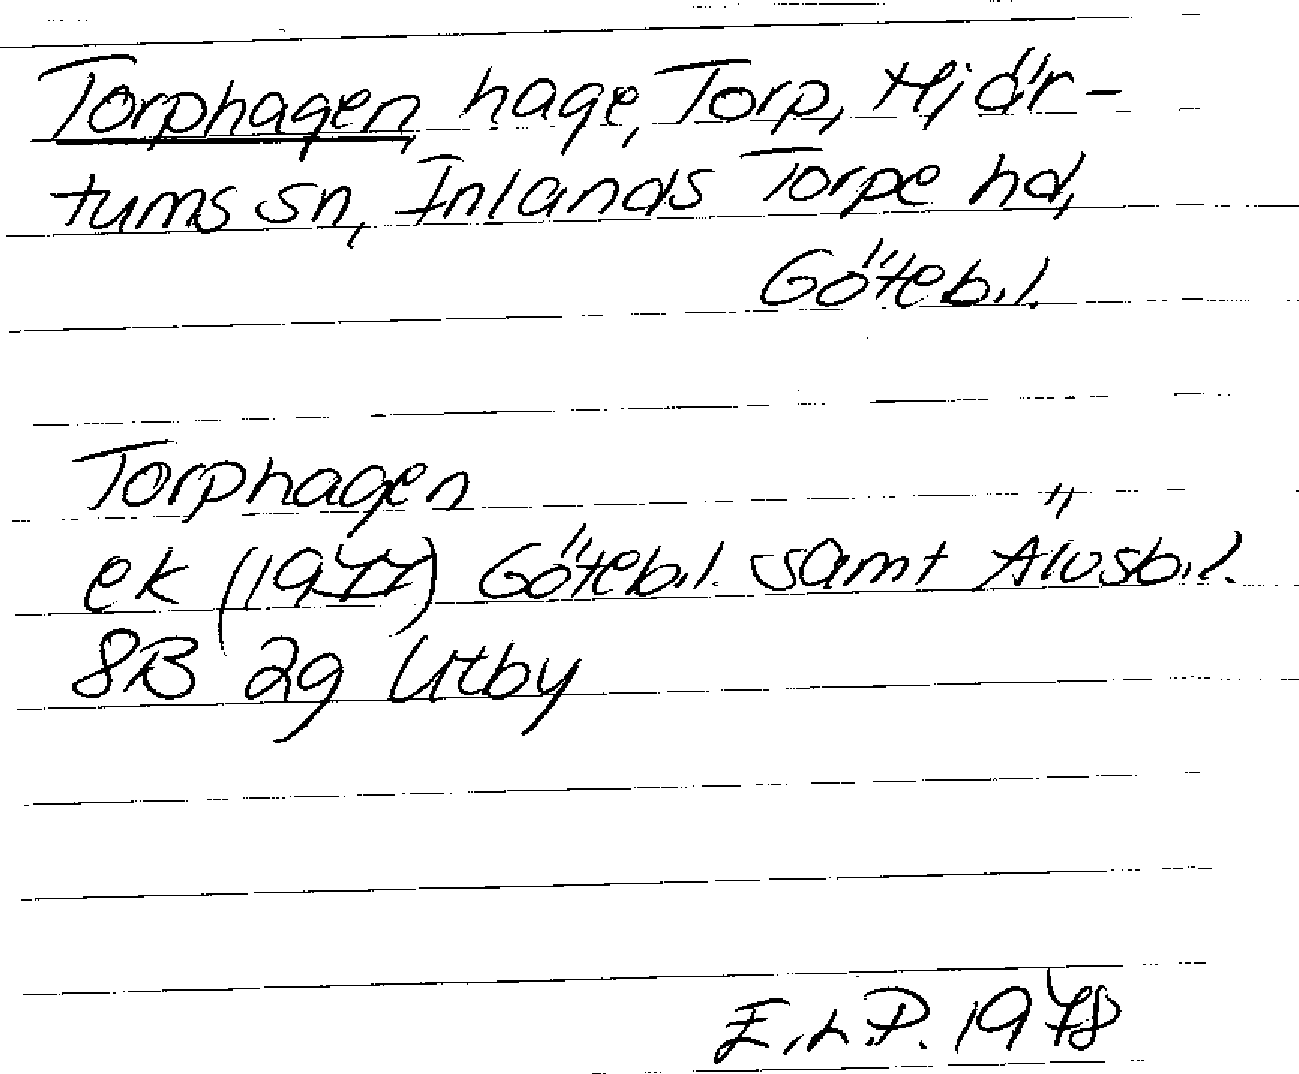 Torphagen, hage, Torp, Hjär-
tums sn, Inlands Torpe hd,
Göteb.l.
Torphagen
ek (1977) Göteb.l. samt Älvsb.l.
8B 2g Utby
E.L.P. 1978